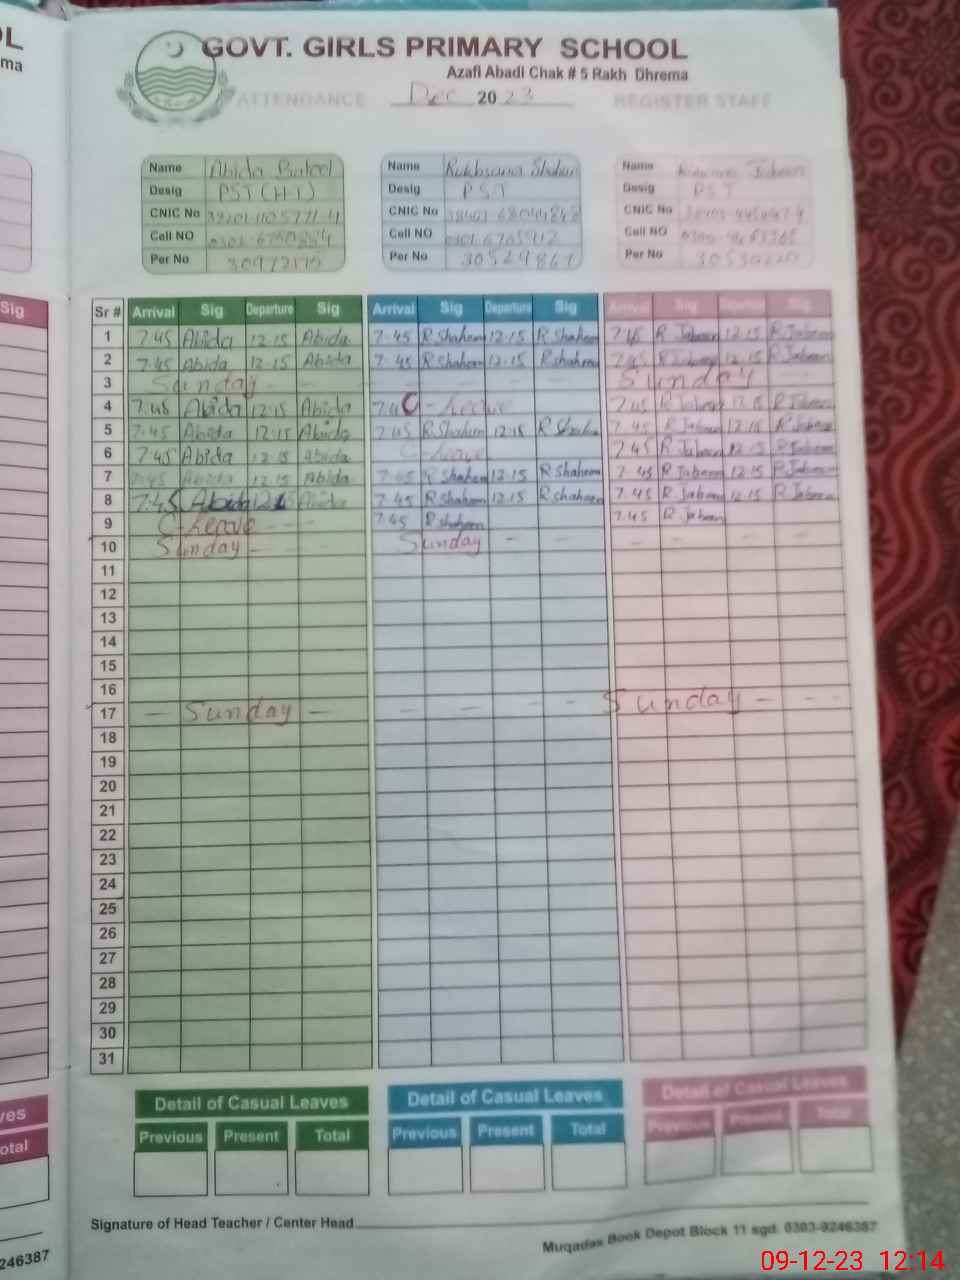 OL
GOVT. GIRLS PRIMARY SCHOOL
ma
Azafi Abadi Chak # 5 Rakh Dhrema
ATTENDANCE Dec 2023 REGISTER STAFF
Name Abida Batool Name Rukhsana Shaheen Name Jabeen
Desig PST (HT) Desig PST Desig PST
CNIC No CNIC No CNIC No
Cell NO Cell NO Cell NO
Per No Per No Per No
Sig Sr # Arrival Sig Departure Sig Arrival Sig Departure Sig Arrival Sig Departure Sig
1 7.45 Abida 12.15 Abida 7.45 R Shaheen 12.15 R Shaheen 7.45 R Jabeen 12.15 R Jabeen
2 7.45 Abida 12.15 Abida 7.45 R Shaheen 12.15 R Shaheen 7.45 R Jabeen 12.15 R Jabeen
3 Sunday - - - - - - Sunday -
4 7.45 Abida 12.15 Abida C-Leave 7.45 R Jabeen 12.15 R Jabeen
5 7.45 Abida 12.15 Abida 7.45 R Shaheen 12.15 R Shaheen 7.45 R Jabeen 12.15 R Jabeen
6 7.45 Abida 12.15 Abida C-Leave 7.45 R Jabeen 12.15 R Jabeen
7 7.45 Abida 12.15 Abida 7.45 R Shaheen 12.15 R Shaheen 7.45 R Jabeen 12.15 R Jabeen
8 7.45 Abida 12.15 Abida 7.45 R Shaheen 12.15 R Shaheen 7.45 R Jabeen 12.15 R Jabeen
9 C-Leave - - 7.45 R Shaheen 7.45 R Jabeen
10 Sunday - - - Sunday - - - - - -
11
12
13
14
15
16
17 - Sunday - - - - - Sunday - - -
18
19
20
21
22
23
24
25
26
27
28
29
30
31
ves Detail of Casual Leaves Detail of Casual Leaves Detail of Casual Leaves
otal Previous Present Total Previous Present Total Previous Present Total
Signature of Head Teacher / Center Head
246387 Muqadas Book Depot Block 11 sgd. 0303-9246387
09-12-23 12:14